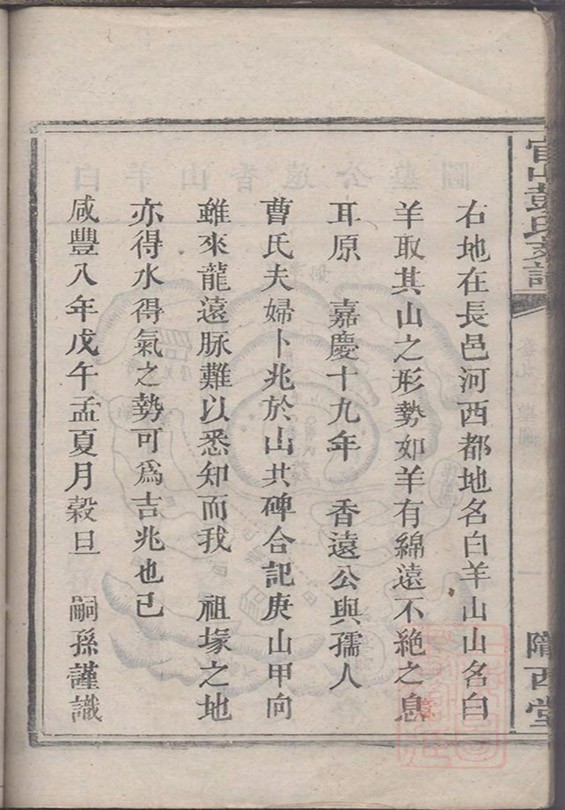 官山彭氏支譜
隴西堂
右地在長邑河西都地名白羊山山名白
羊取其山之形勢如羊有綿遠不絶之息
耳原 嘉慶十九年 香遠公與孺人
曹氏夫婦卜兆於山共碑合記庚山甲向
雖來龍遠脉難以悉知而我 祖塚之地
亦得水得氣之勢可爲吉兆也已
咸豐八年戊午孟夏月穀旦 嗣孫謹識